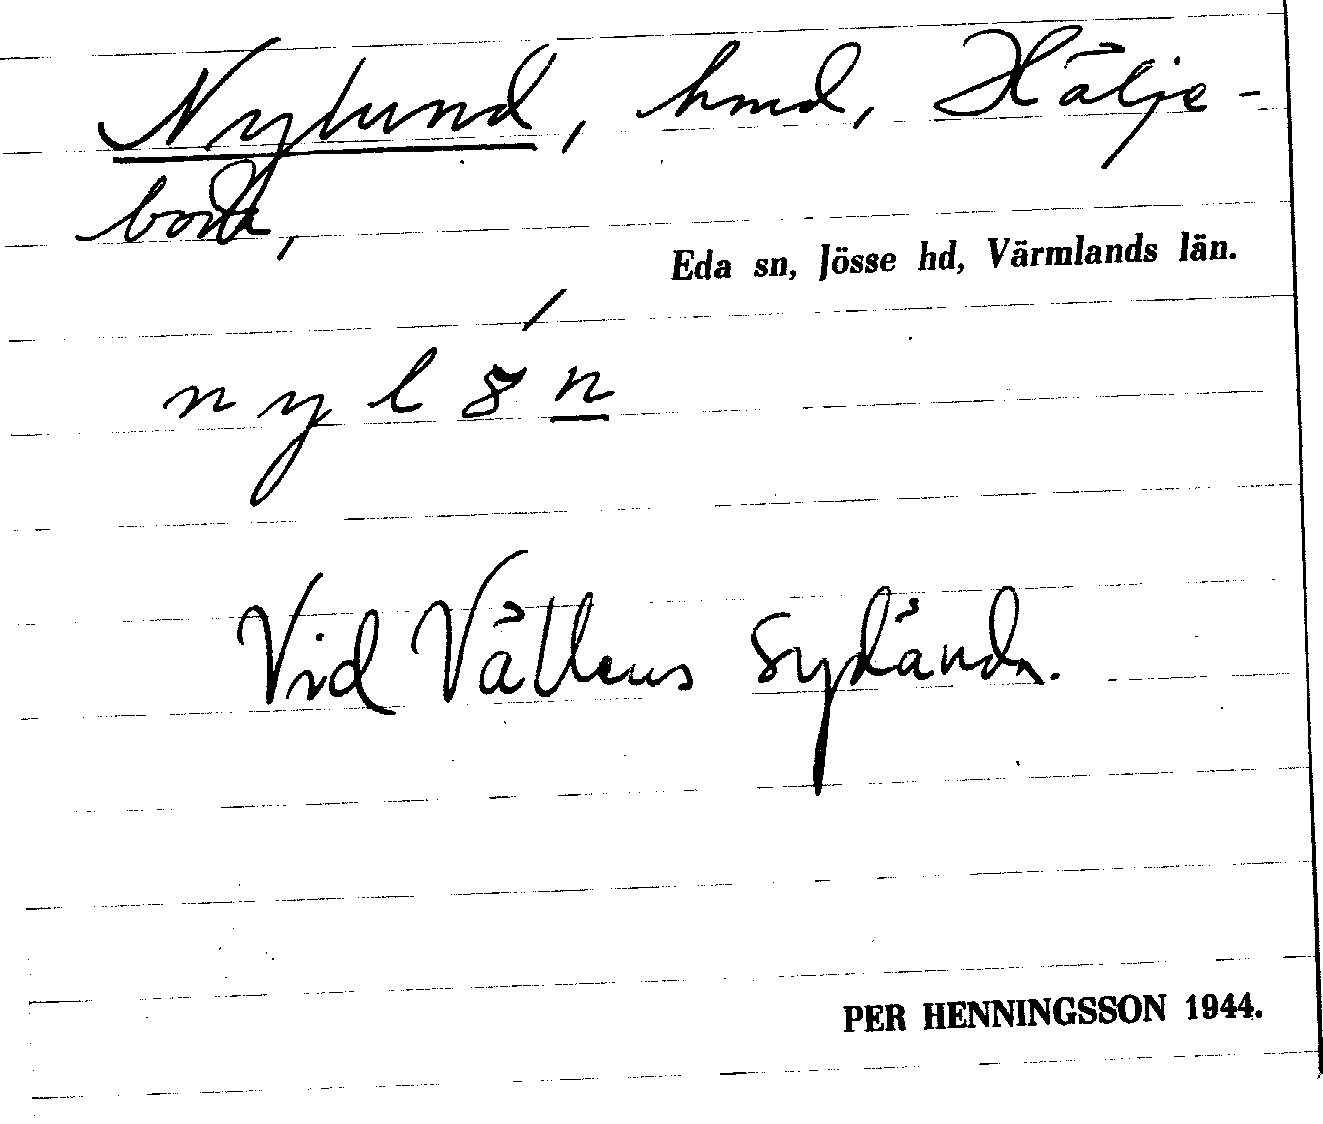 Nylund, hmd, Hälje-
boda,
Eda sn, Jösse hd, Värmlands län.
n y l 8 n
Vid Vällens sydända.
PER HENNINGSSON 1944.